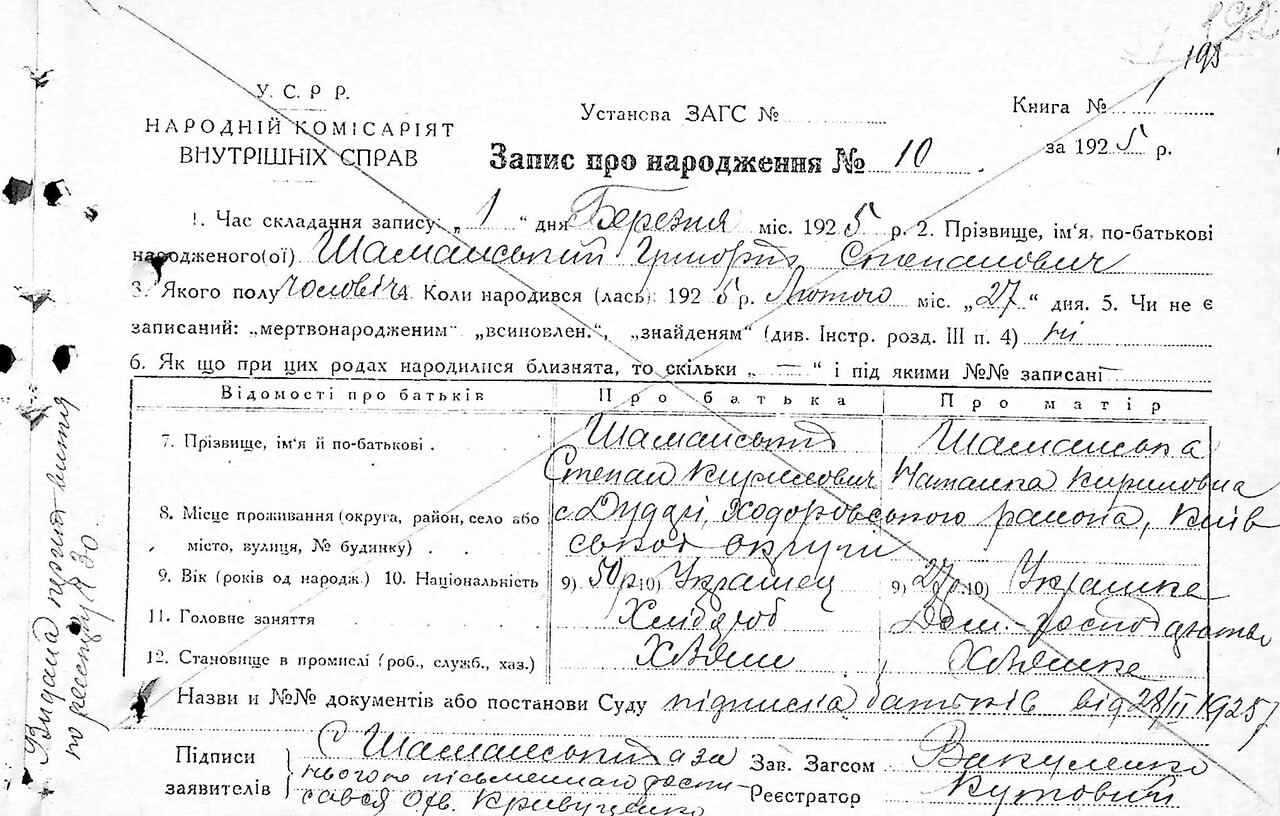 195
У. С. Р Р.
НАРОДНІЙ КОМІСАРІЯТ
ВНУТРІШНІХ СПРАВ
Установа ЗАГС №
Книга № 1
за 1925 р.
Запис про народження № 10
1. Час складання запису: „1“ дня Березня міс. 1925 р. 2. Прізвище, ім'я, по-батькові
народженого(ої) Шаманський Григорій Степанович
3. Якого полу чоловіч 4. Коли народився (лась): 1925 р. Лютого міс. „27“ дня. 5. Чи не є
записаний: „мертвонародженим“ „всиновлен.“, „знайденям“ (див. Інстр. розд. III п. 4) ні
6. Як що при цих родах народилися близнята, то скільки „ — “ і під якими №№ записані —
Відомості про батьків Про батька Про матір
7. Прізвище, ім'я й по-батькові . Шаманський Шаманська
Степан Кирилович Наталка Кириловна
8. Місце проживання (округа, район, село або с Дудді, Ходоровського района, Київ
місто, вулиця, № будинку) . . ської округи
9. Вік (років од народж.) 10. Національність 9) 50 р 10) Українец 9) 27 р. 10) Українка
11. Головне заняття . . . Хлібороб Дом. господ
12. Становище в промислі (роб., служб., хаз.) Хазяин Хазяйка
Назви и №№ документів або постанови Суду підписка батьків від 28/II 1925 р
Підписи
заявителів
С Шаманський а за
нього письменнаго роспи-
сався Кривущенко
Зав. Загсом Вакуленко
Реєстратор Кутовий
Видана
по реєстру № 30.